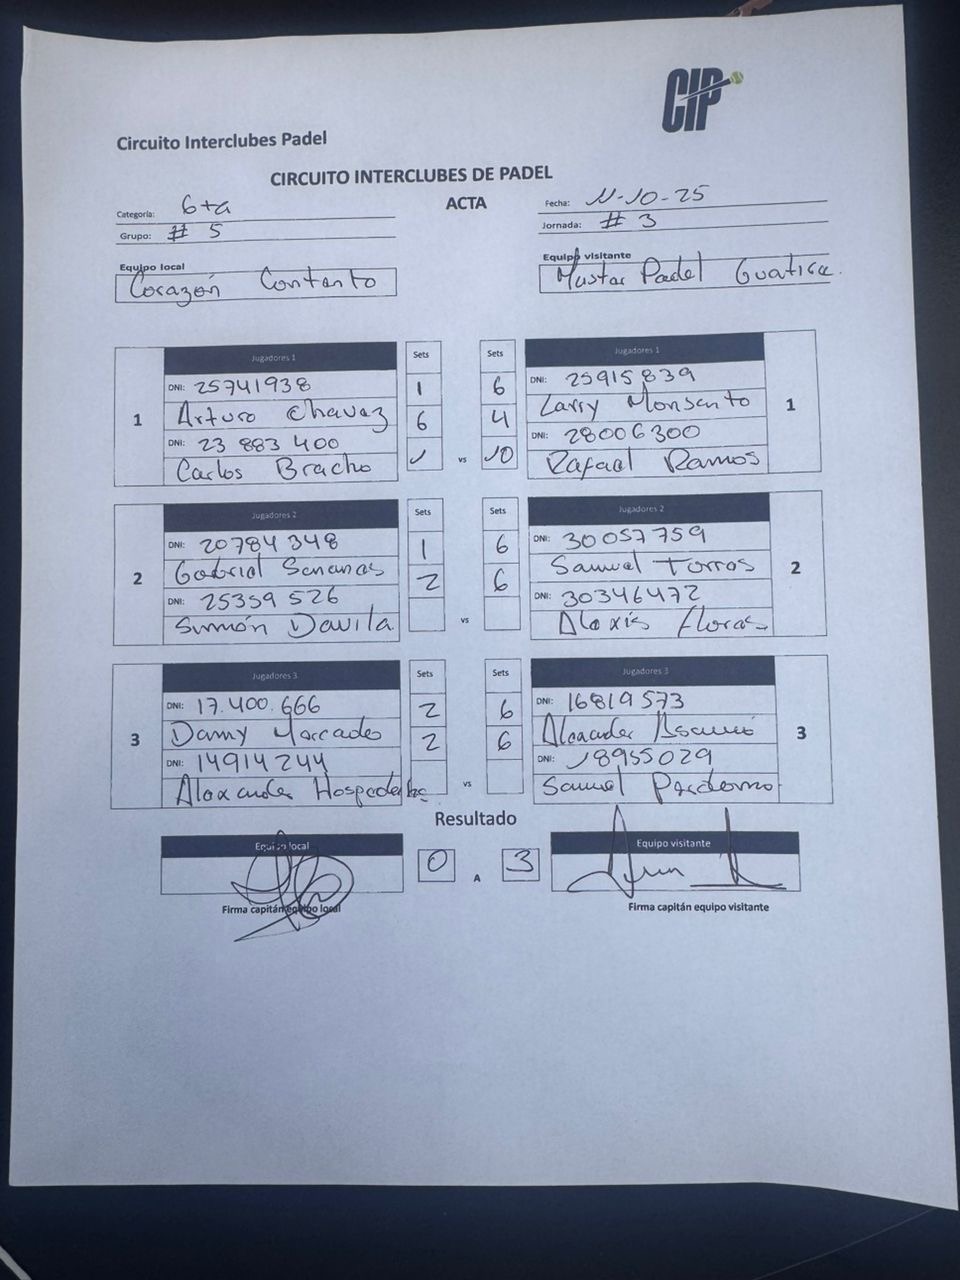 CIP
Circuito Interclubes Padel
CIRCUITO INTERCLUBES DE PADEL
ACTA
Categoría: 6ta
Grupo: # 5
Fecha: 11-10-25
Jornada: # 3
Equipo local
Corazón Contento
Equipo visitante
Mustar Padel Guatire.
1
Jugadores 1
DNI: 25741938
Arturo Chavez
DNI: 23 883 400
Carlos Bracho
Sets
1
6
1
vs
Sets
6
4
10
Jugadores 1
DNI: 25915839
Larry Monsanto
DNI: 28006300
Rafael Ramos
1
2
Jugadores 2
DNI: 20784348
Gabriel
DNI: 25359526
Simón Davila
Sets
1
2
vs
Sets
6
6
Jugadores 2
DNI: 30057759
Samuel Torres
DNI: 30346472
Alexis Flores
2
3
Jugadores 3
DNI: 17.400.666
Danny Mercades
DNI: 14914244
Alexander
Sets
2
2
vs
Sets
6
6
Jugadores 3
DNI: 16819573
Alexander
DNI: 18955029
Samuel Perdomo
3
Resultado
Equipo local
0
A
3
Equipo visitante
Firma capitán equipo local
Firma capitán equipo visitante